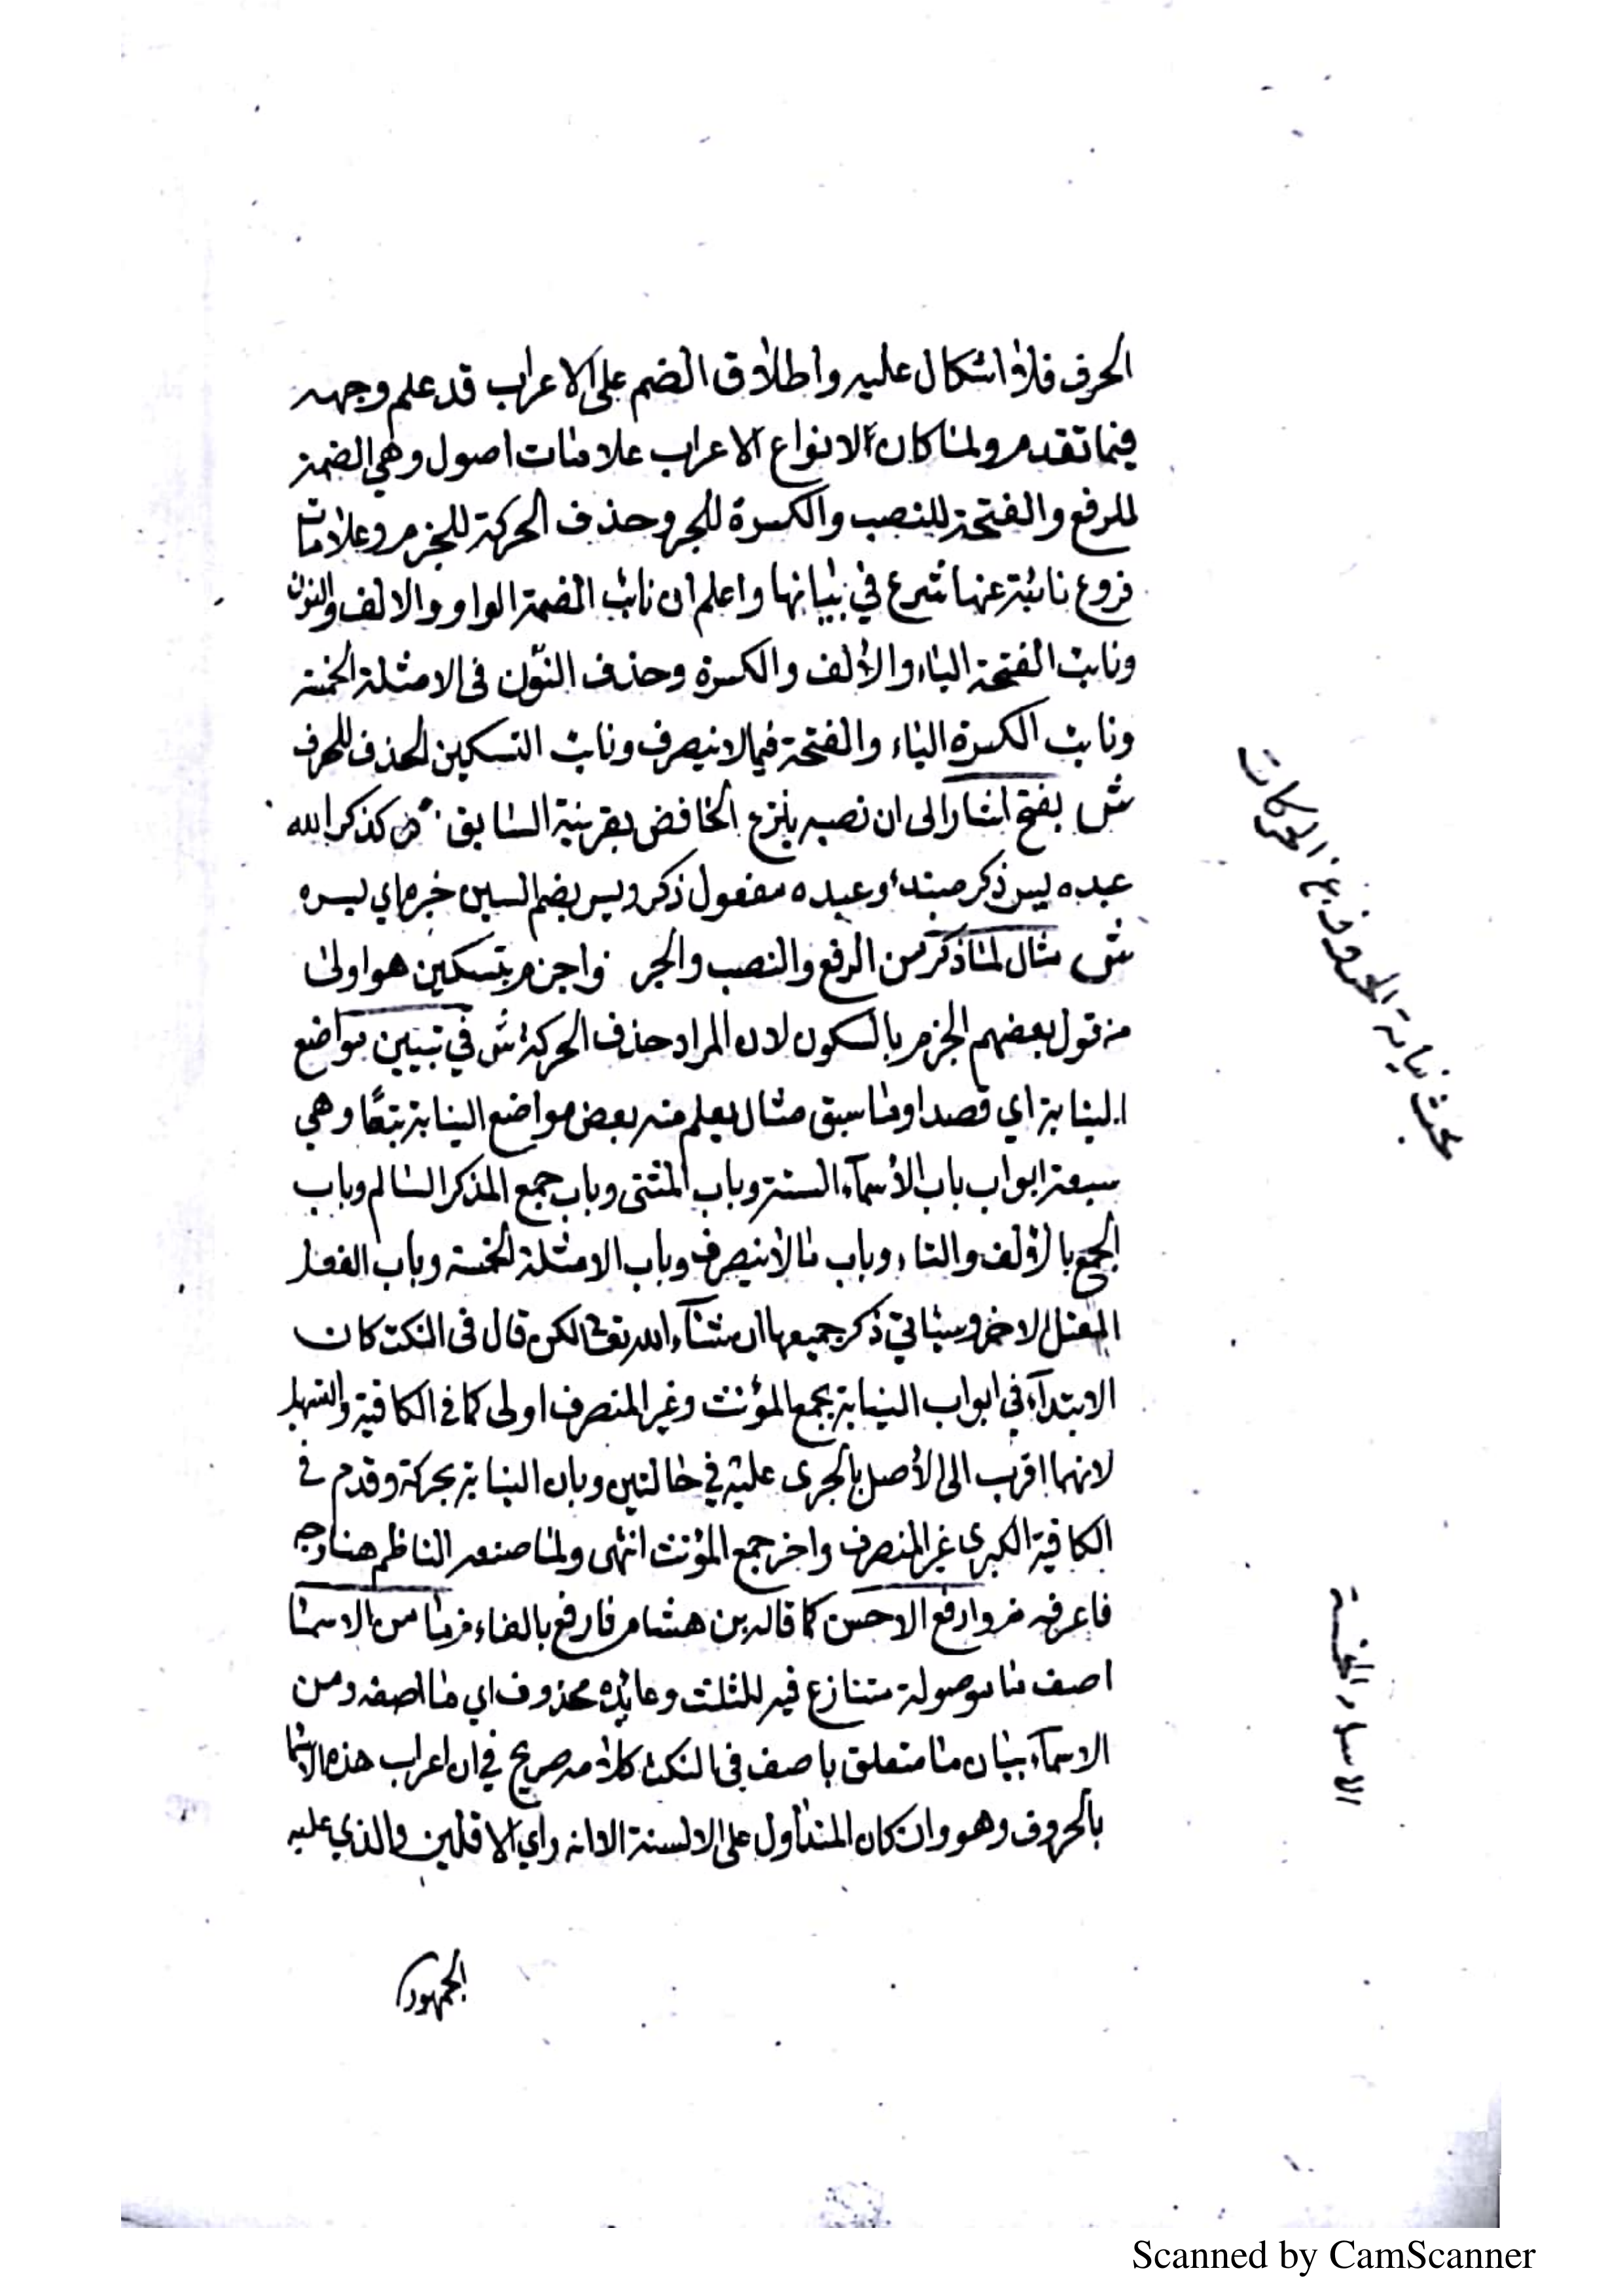 الحرف فلا اشكال عليه واطلاق الضم على الاعراب قد علم وجهه
فيما تقدم ولما كان الانواع الاعراب علامات اصول وهي الضمة
للرفع والفتحة للنصب والكسرة للجر وحذف الحركة للجزم وعلامات
فروع نائبة عنها شرع في بيانها واعلم ان نائب الضمة الواو والالف والنون
ونائب الفتحة الياء والالف والكسرة وحذف النون فى الامثلة الخمسة
ونائب الكسرة الياء والفتحة فيما لا ينصرف ونائب التسكين الحذف للحرف
ش بفتح اشار الى ان نصبه بنزع الخافض بقرينة السابق ص كذكر الله
عبده يسر ذكر مبتدأ وعبده مفعول ذكر ويسر بضم السين خبره اي يسره
ش مثال لما ذكر من الرفع والنصب والجر واجزم بتسكين هو اولى
من قول بعضهم الجزم بالسكون لان المراد حذف الحركة ش في تبيين مواضع
النيابة اي قصدا وما سبق مثال يعلم منه بعض مواضع النيابة تبعًا وهي
سبعة ابواب باب الأسمآء الستة وباب المثنى وباب جمع المذكر السالم وباب
الجمع بالألف والتاء وباب ما لا ينصرف وباب الامثلة الخمسة وباب الفعل
المعتل الاخر وسيأتي ذكر جميعها ان شآء الله تعالى لكن قال فى النكت كان
الابتدآء في ابواب النيابة بجمع المؤنث وغير المنصرف اولى كما فى الكافية والتسهيل
لانهما اقرب الى الأصل بالجرى عليه في حالتين وبان النيابة بحركة وقدم في
الكافية الكبرى غير المنصرف واخر جمع المؤنث انتهى ولما صنعه الناظم هنا وجه
فاعرفه وارفع الاحسن كما قاله بن هشام فارفع بالفاء من الاسما
اصف ما موصولة متنازع فيه للثلث وعائده محذوف اي ما اصفه ومن
الاسمآء بيان ما متعلق باصف فى النكت كلامه صريح في ان اعراب هذه الاسما
بالحروف وهو وان كان المتداول على الالسنة الا انه راي الاقلين والذي عليه
الجمهور
بحث نيابة الحروف عن الحركات
الاسماء الخمسة
Scanned by CamScanner